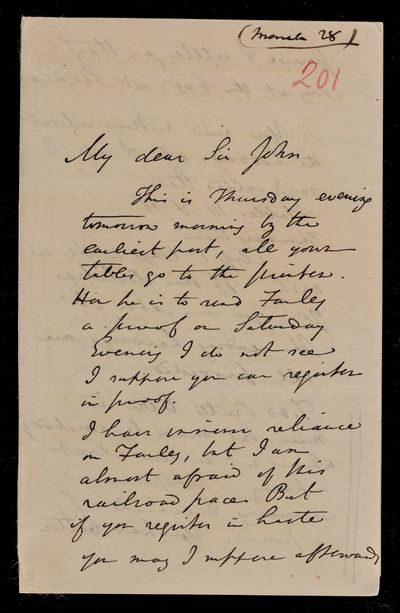 (March 28)
201
My dear Sir John
This is Thursday evening
tomorrow morning by the
earliest post, all your
tables go to the printer.
How he is to send Farley
a proof on Saturday
Evening I do not see
I suppose you can register
in proof.
I have immense reliance
on Farley, but I am
almost afraid of this
railroad pace. But
if you register in haste
you may I suppose afterwards